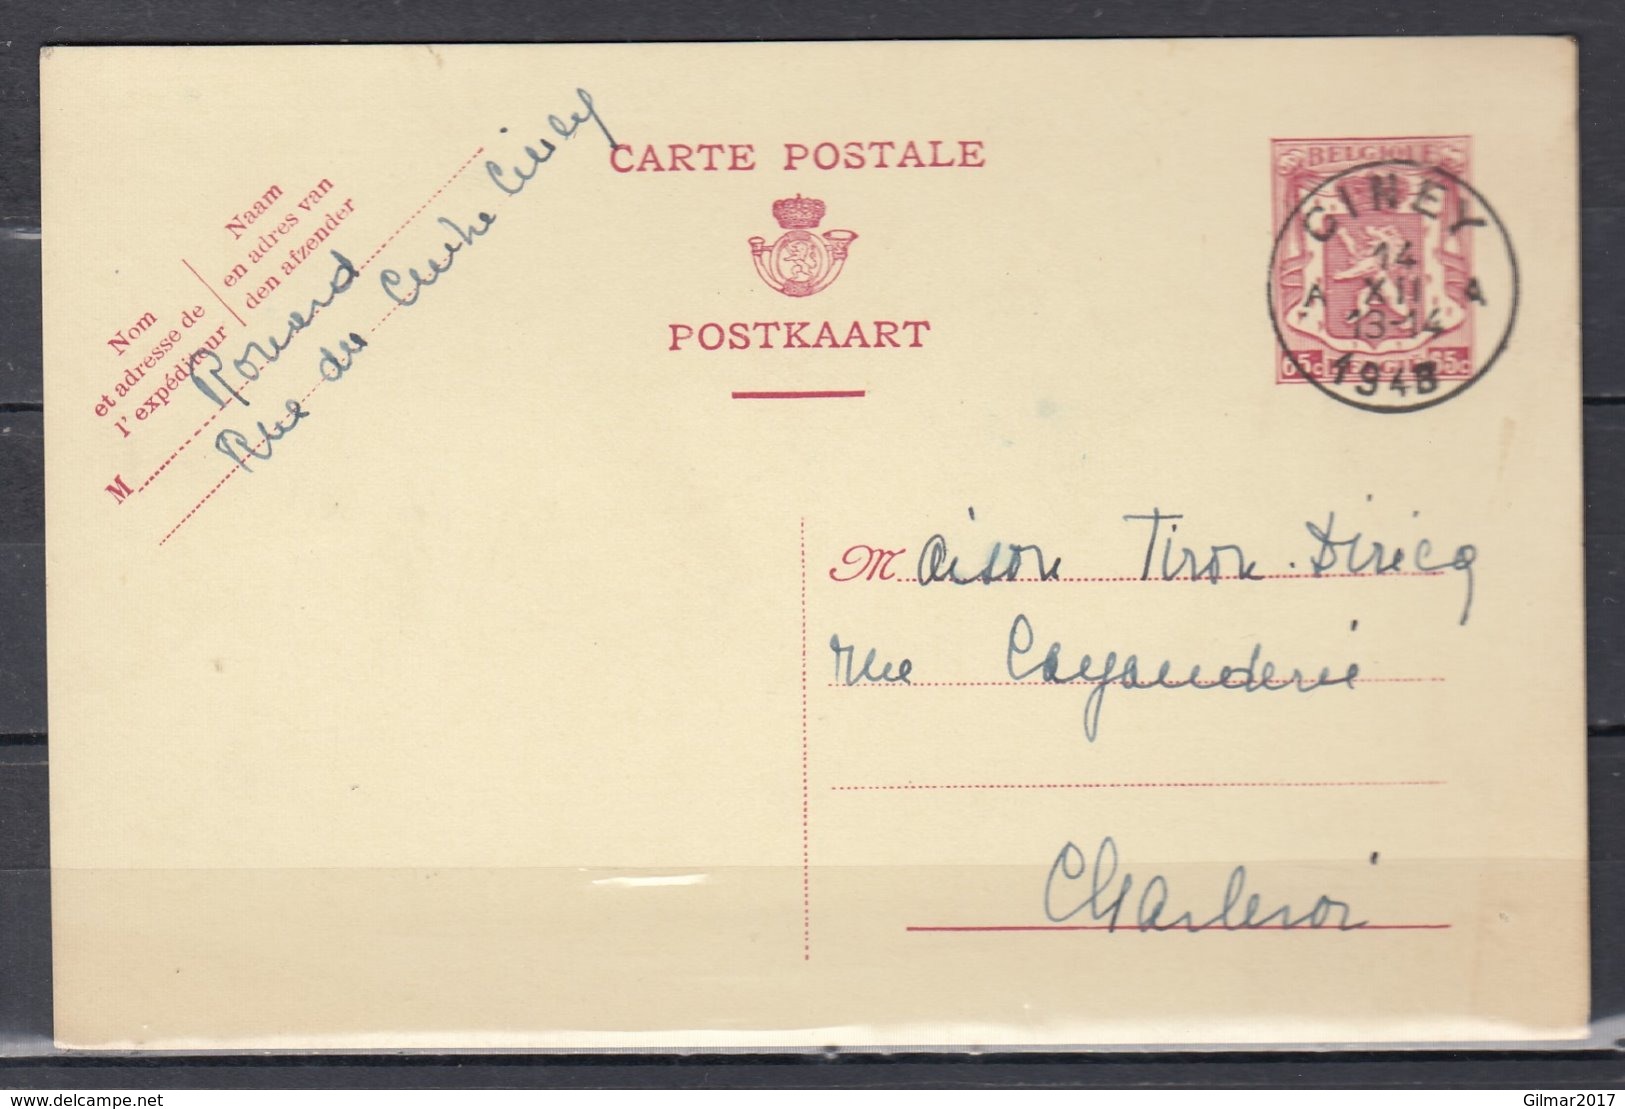 CARTE POSTALE
POSTKAART
Nom
et adresse de
l' expéditeur
Naam
en adres van
den afzender
M
Rue du Ciney
BELGIQUE
65c BELGIË 65c
CINEY
14
A XII A
13-14
1948
Maison Tiron-Diricq
rue
Charleroi
delcampe.net
Gilmar2017